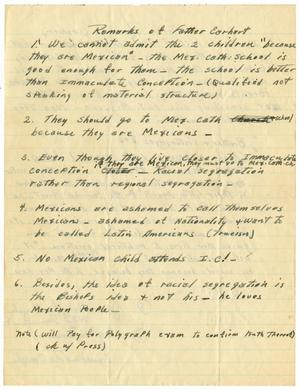 Remarks of Father Carhart
1. We cannot admit the 2 children "because
they are Mexican" - The Mex. Cath. School is
good enough for Them - The School is better
than Immaculate Conception - (Qualified not
speaking of material structure)
2. They Should go to Mex. Cath Church School
because they are Mexicans -
3. Even though they live closer to Immaculate
if they are Mexican, they must go to Mex. Cath. Ch.
Conception - Racial segregation
rather than regional segregation -
4. Mexicans are ashamed to call Themselves
Mexicans - ashamed of Nationality & want to
be called Latin Americans (Trueism)
5. No Mexican child attends I.C! -
6. Besides, the idea of racial segregation is
the Bishop's idea & not his - he loves
Mexican People -
Note (will Pay for Polygraph exam to confirm truth Thereof)
(ck w/ Press)